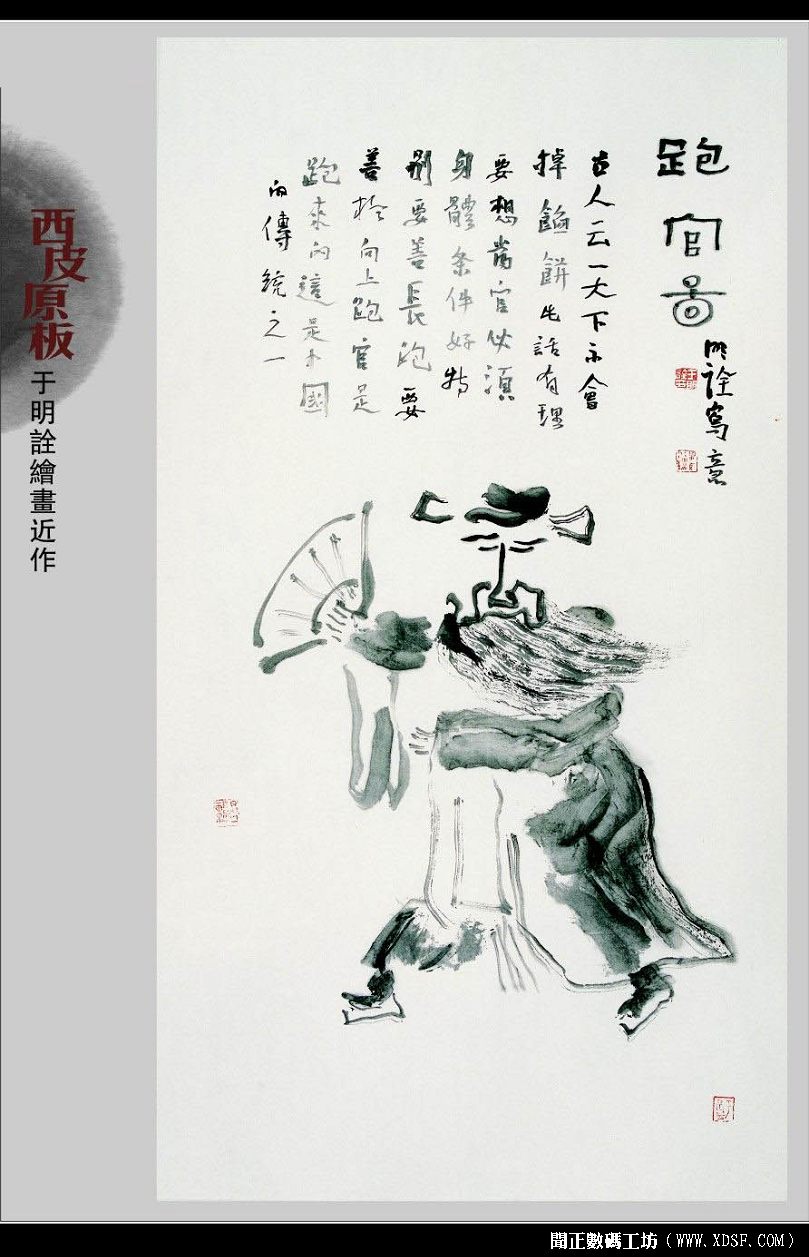 跑官啚
明詮寫意
古人云一天下不會
掉餡餅此話有理
要想當官必須
身體条件好特
別要善長跑要
善於向上跑官是
跑來的這是中國
的傳統之一
西皮原板
于明詮繪畫近作
聞正數碼工坊（WWW.XDSF.COM）